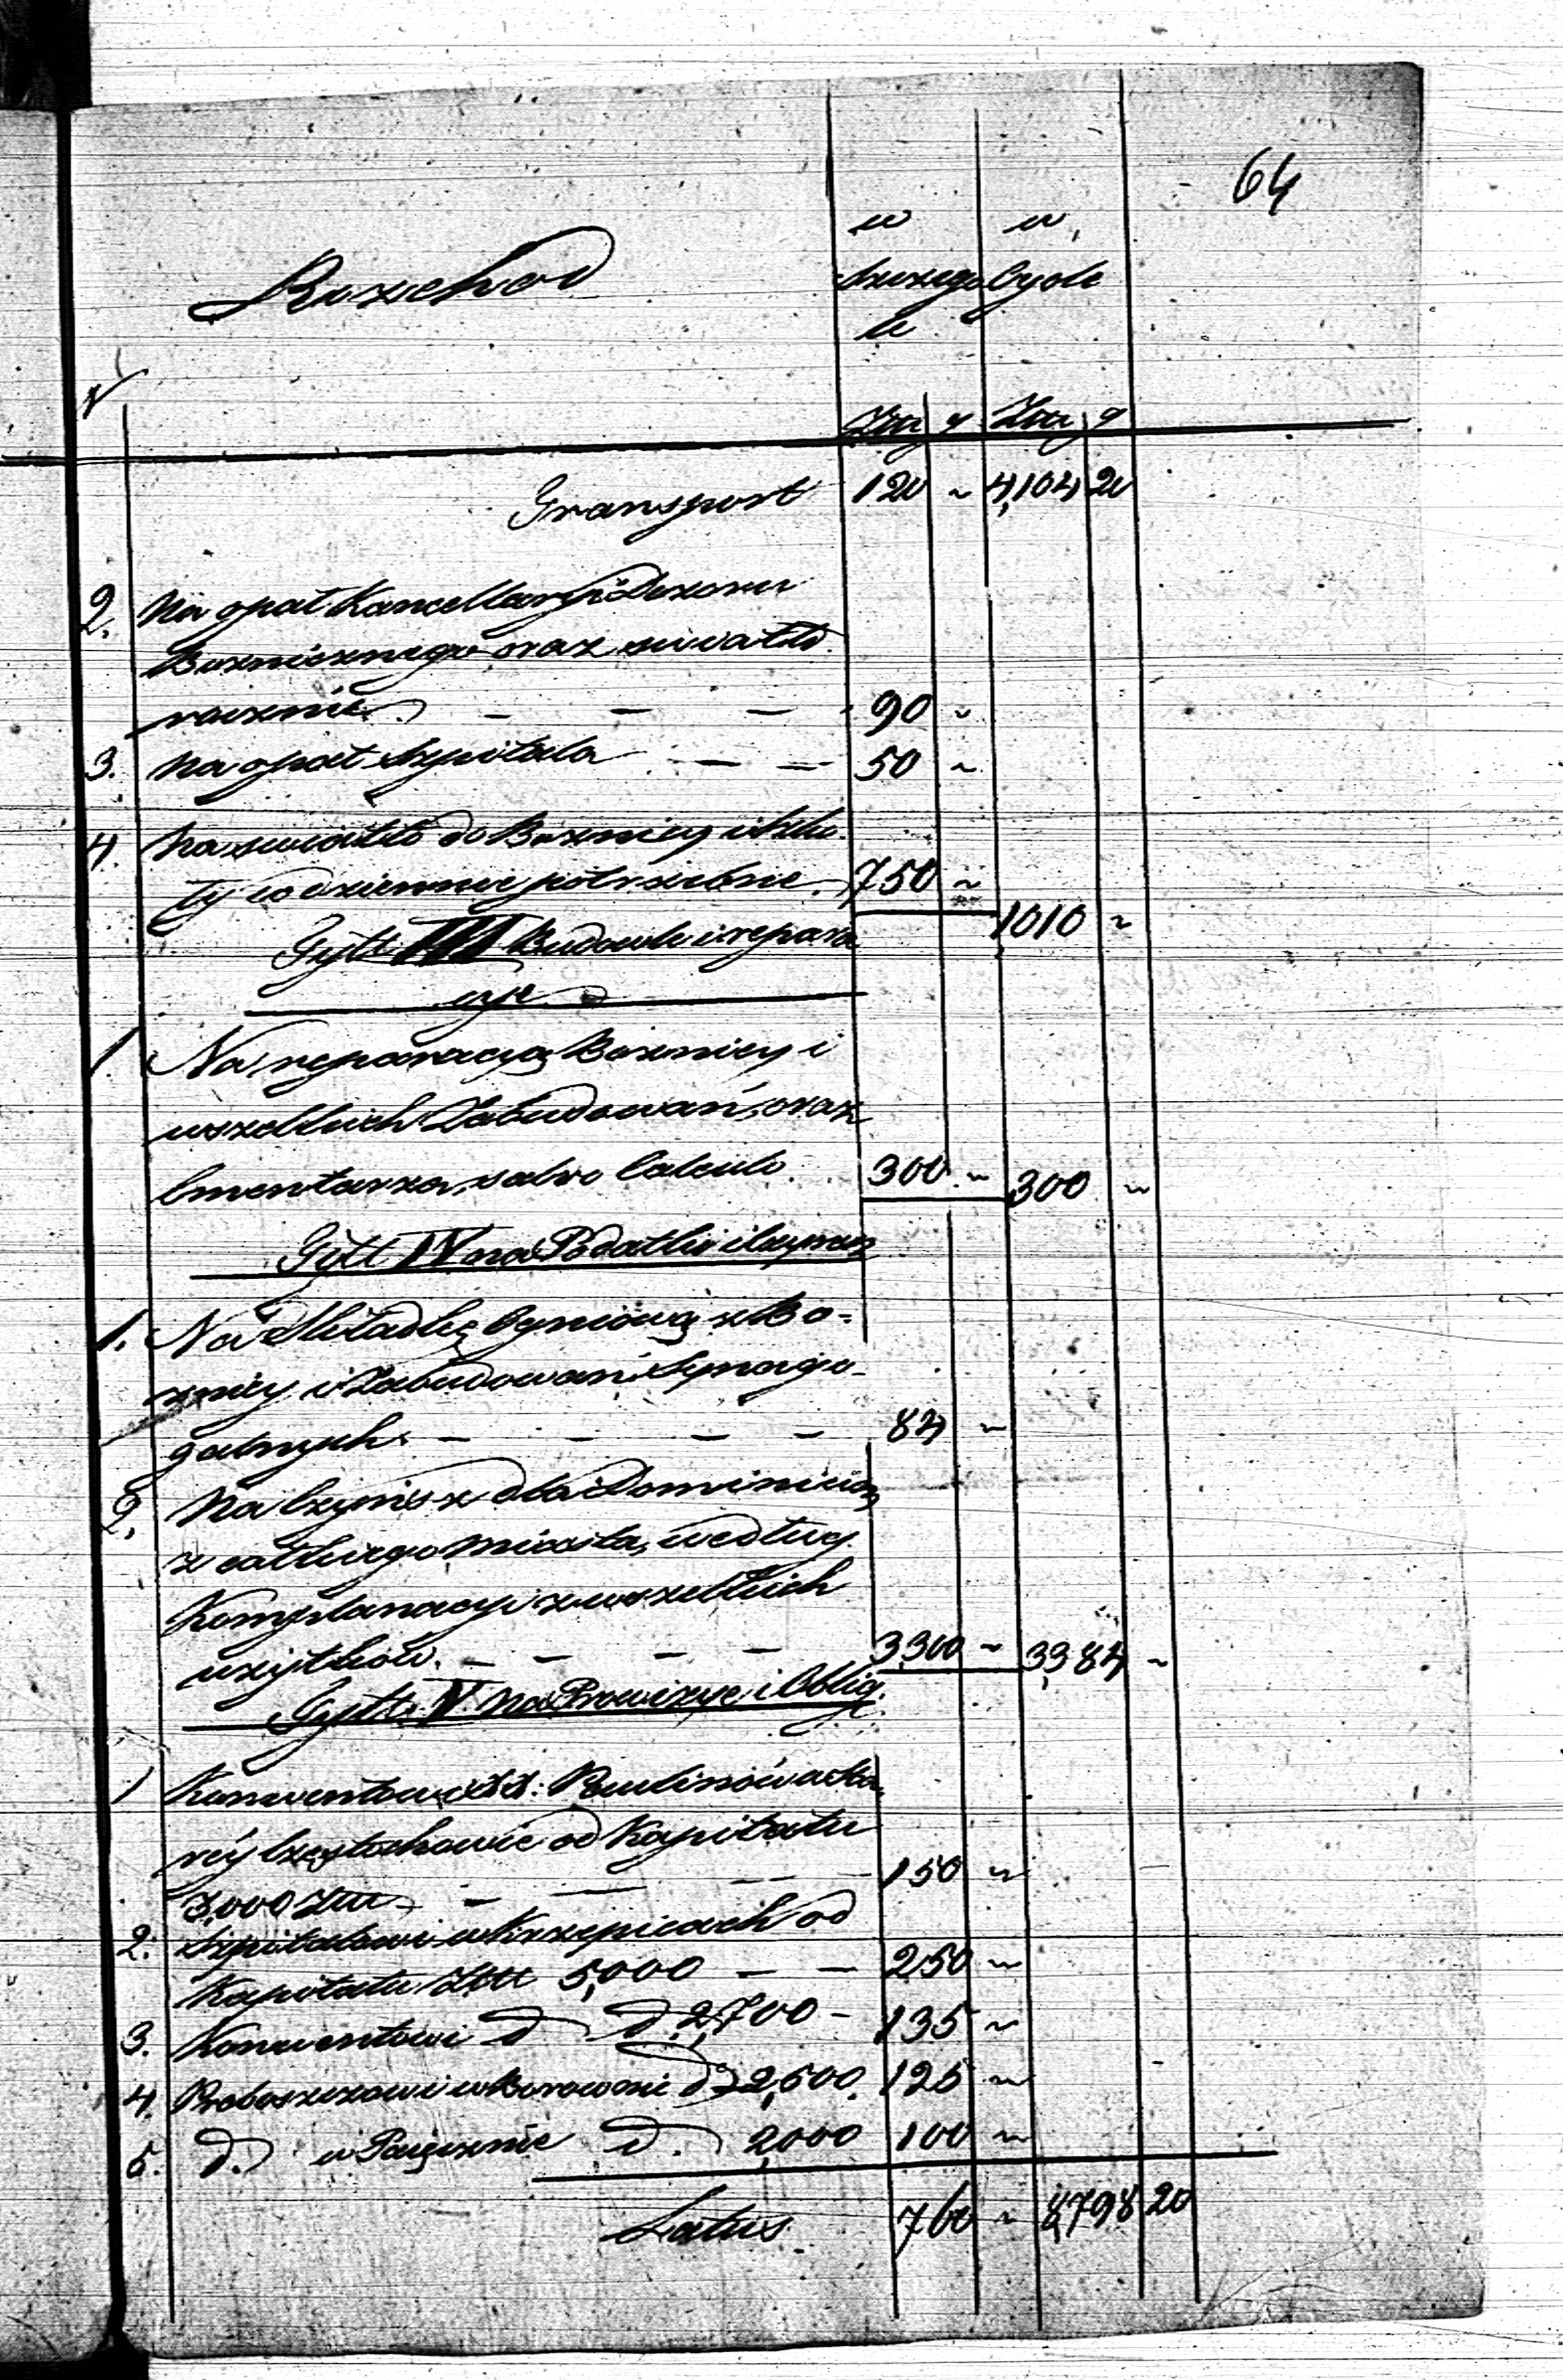 64
w w
Rozchod szczego Ogole
le
N
Złtt g Złtt g
Transport 120 ~ 4,104 20
2. Na opał Kancellaryi Dozoru
Bozniczego oraz swiatło
rocznie. — — — 90 ~
3. Na opał Szpitala — — 50 ~
4. Na swiatło do Boznicy i Szko
ły codziennie potrzebne. 750 ~
1010 ~
Tytt III Budowle i repara
cye
1 Na reparacyą Boznicy i
wszelkich Zabudowań, oraz
Cmentarza, salvo Calculo. 300 ~ 300 ~
Tytt IV na Podatki i
1. Na Składkę Ogniową z Bo-
znicy i Zabudowań Synago-
galnych. — — — — 84 ~
2. Na Czynsz dla Dominium
z całkiego Miasta, według
Komplanacyi z wszelkich
użytków. — — — — 3,300 ~ 3,384 ~
Tytt. V. na Prowizye i Oblig.
1 Konwentowi XX: Paulinów w Sta
réy Częstochowie od Kapitału
3,000 Złtt — — — — 150 ~
2. Szpitalowi w Krzepicach od
Kapitału Złtt 5,000 — — 250 ~
3. Konwentowi d d. 2,700 — 135 ~
4. Proboszczowi w Borownie d 2,500. 125 ~
5. d. w Pajęcznie d. 2,000 100 ~
Latus. 760 ~ 8,798 20